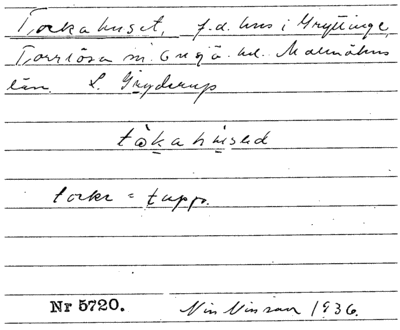 Tockahuset, f.d. hus i Gryttinge,
Torrlösa sn. Onsjö hd. Malmöhus
län. L. Gryderup
tåkahused
tocke = tupp.
Nr 5720. Nils Nilsson 1936.